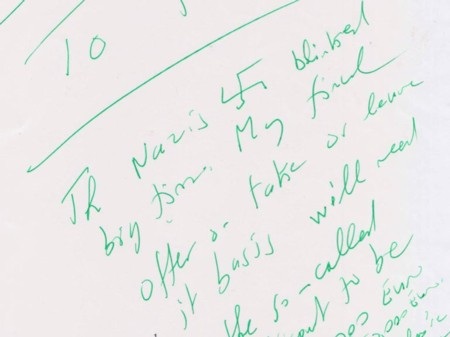 To
The Nazis 卐 blinked
big time. My final
offer on take or leave
it basis will read
the so-called
to be